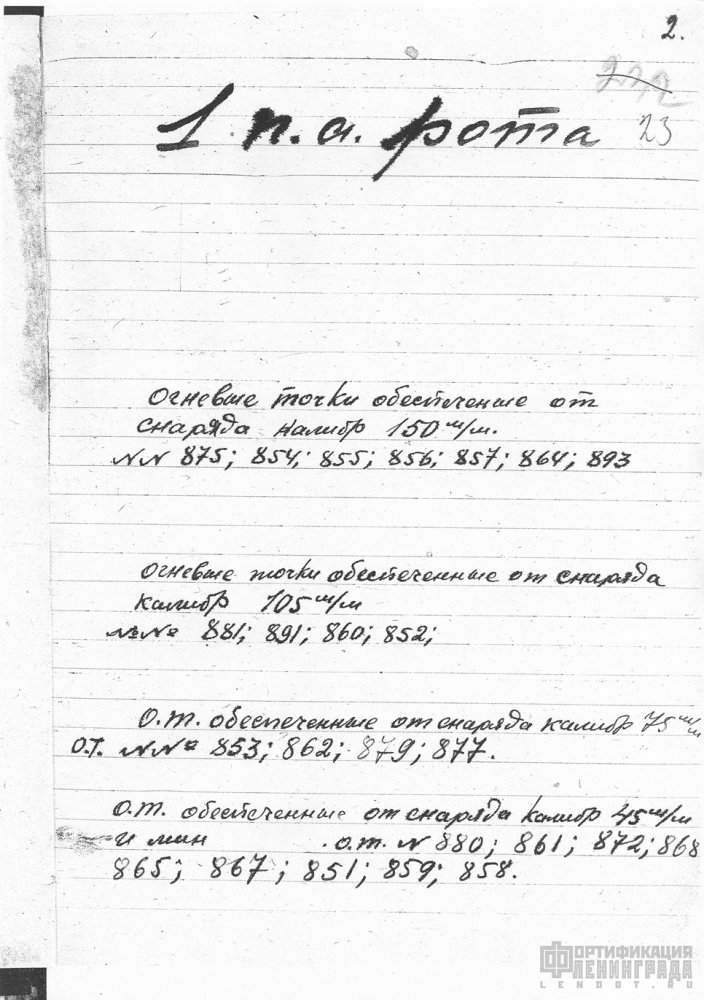 2.
232
23
1 п.а. рота
Огневые точки обеспеченные от
снаряда калибр 150 м/м.
NN 875; 854; 855; 856; 857; 864; 893
Огневые точки обеспеченные от снаряда
калибр 105 м/м
№№ 881; 891; 860; 852;
О.т. обеспеченные от снаряда калибр 75 м/м
О.Т. №№ 853; 862; 879; 877.
О.т. обеспеченные от снаряда калибр 45 м/м
и мин . о.т. N 880; 861; 872; 868
865; 867; 851; 859; 858.
ФОРТИФИКАЦИЯ
ЛЕНИНГРАДА
LENDOT.RU